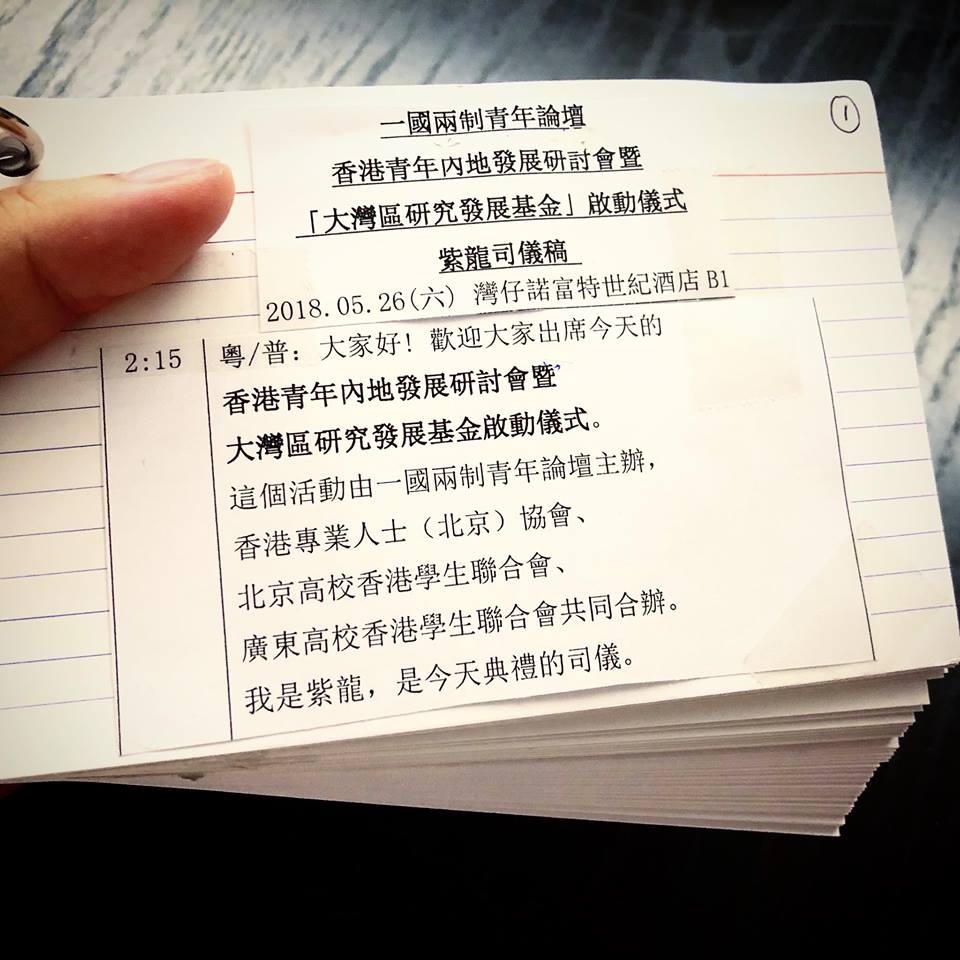 1
一國兩制青年論壇
香港青年內地發展研討會暨
「大灣區研究發展基金」啟動儀式
紫龍司儀稿
2018.05.26(六) 灣仔諾富特世紀酒店 B1
2:15 粵/普：大家好！歡迎大家出席今天的
香港青年內地發展研討會暨
大灣區研究發展基金啟動儀式。
這個活動由一國兩制青年論壇主辦，
香港專業人士（北京）協會、
北京高校香港學生聯合會、
廣東高校香港學生聯合會共同合辦。
我是紫龍，是今天典禮的司儀。